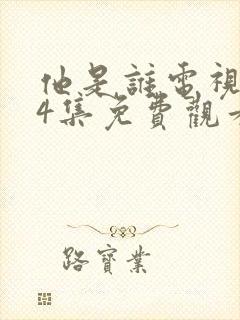 他是誰電視
4集免費觀看
路寶業